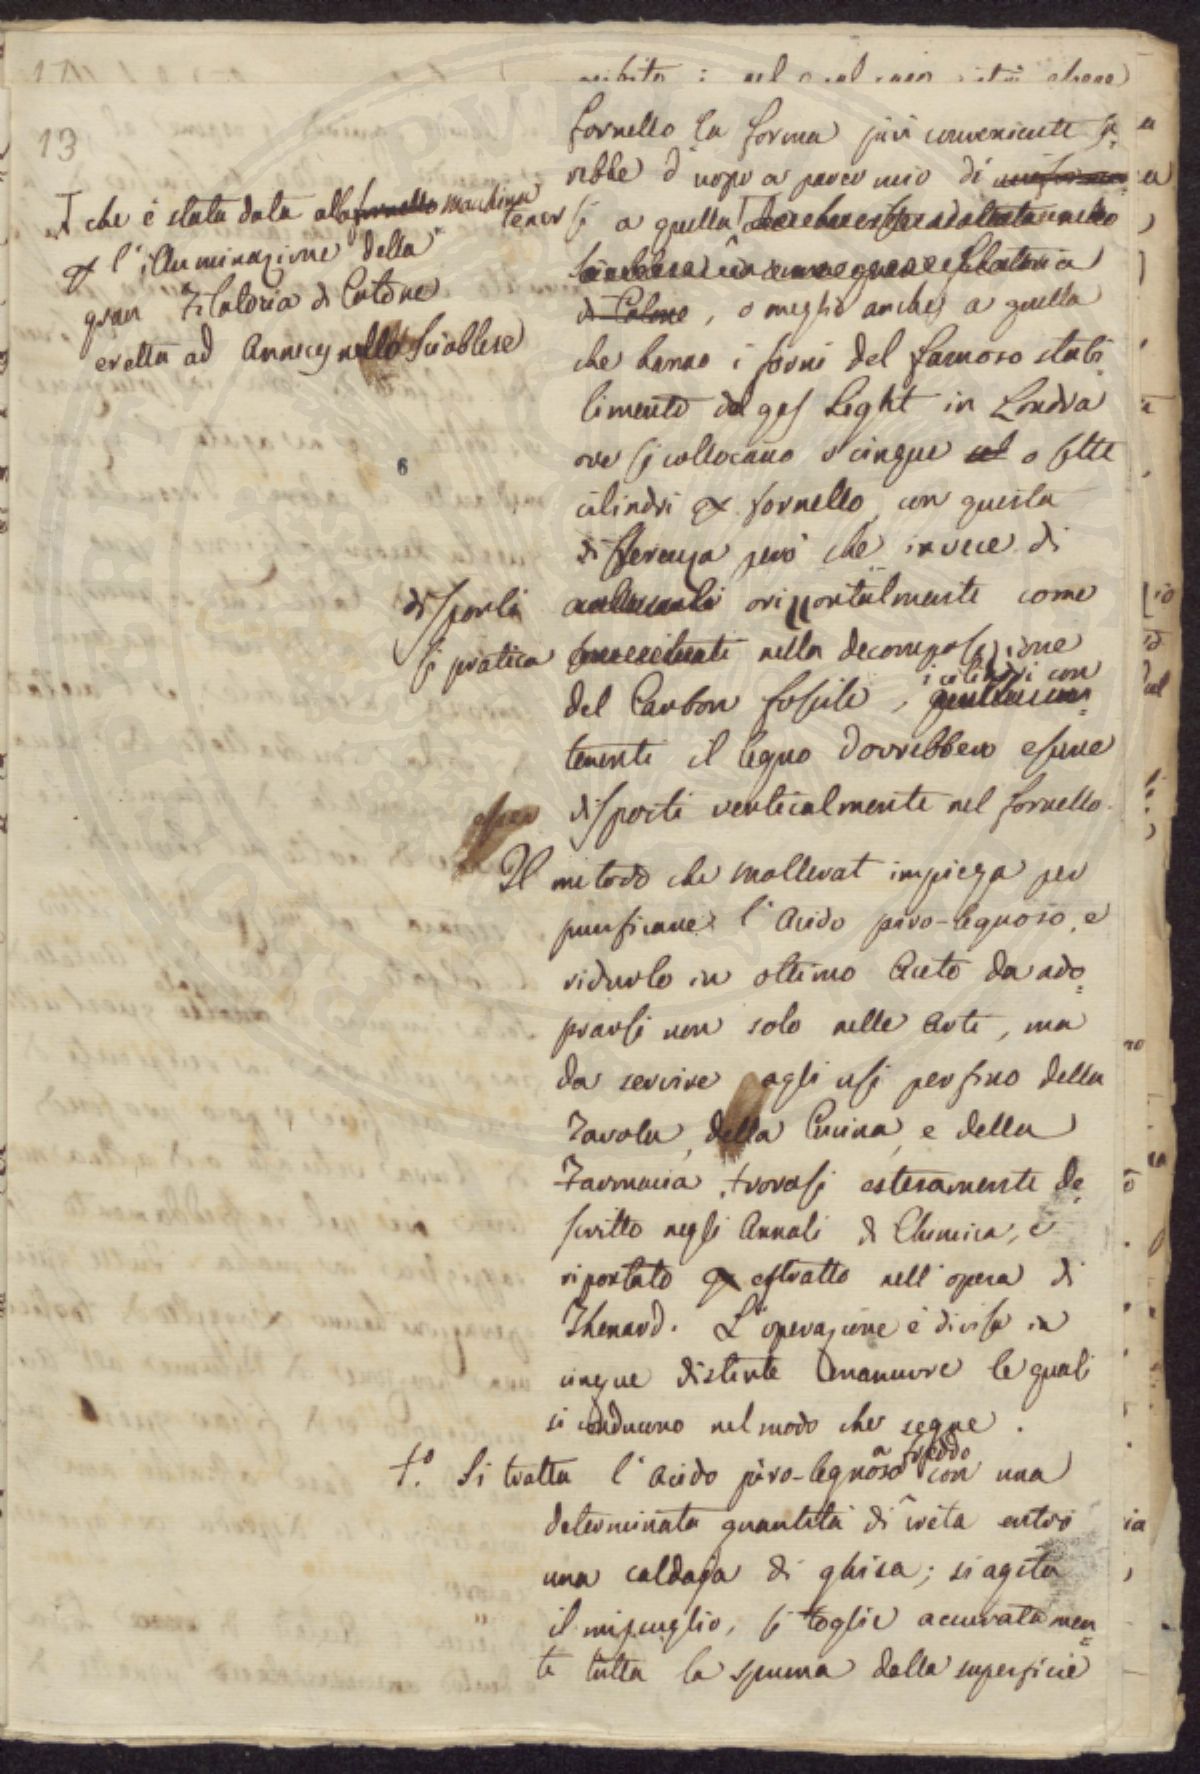 13
fornello la forma più conveniente sa=
rebbe d'uopo a parer mio di
tenersi a quella
di Cotone, o meglio anche a quella
che hanno i forni del famoso stabi
limento del gas Leght in Londra
ove si collocano o cinque o sette
cilindri per fornello, con questa
differenza però che invece di
disporli orizzontalmente come
si pratica nella decomposizione
del Carbon fossile, i cilindri con=
tenenti il legno dovrebbero essere
disposti verticalmente nel fornello.
che è stata data alla fornello machina
per l'illuminazione della
gran Filatoria di Cotone
eretta ad Annecy nello Sciablese
Il metodo che Mollerat impiega per
purificare l'Acido piro-legnoso, e
ridurlo in ottimo Aceto da ado=
prarsi non solo nelle Arti, ma
da servire agli usi perfino della
Tavola, della Cucina, e della
Farmacia, trovasi estesamente de=
scritto negli Annali di Chimica, e
riportato per estratto nell'opera di
Thenard. L'operazione è divisa in
cinque distinte manuvre le quali
si conducono nel modo che segue.
1.° Si tratta l'Acido piro-legnoso a freddo con una
determinata quantità di creta entro
una caldaja di ghisa; si agita
il miscuglio, si toglie accuratamen=
te tutta la spuma dalla superficie